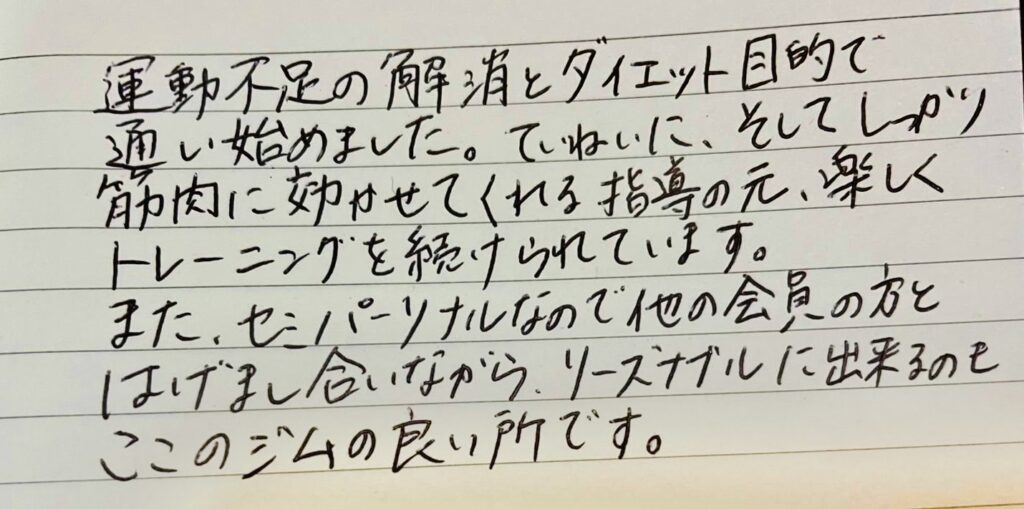 運動不足の解消とダイエット目的で
通い始めました。ていねいに、そしてしっかり
筋肉に効かせてくれる指導の元、楽しく
トレーニングを続けられています。
また、セミパーソナルなので他の会員の方と
はげまし合いながら、リーズナブルに出来るのも
ここのジムの良い所です。